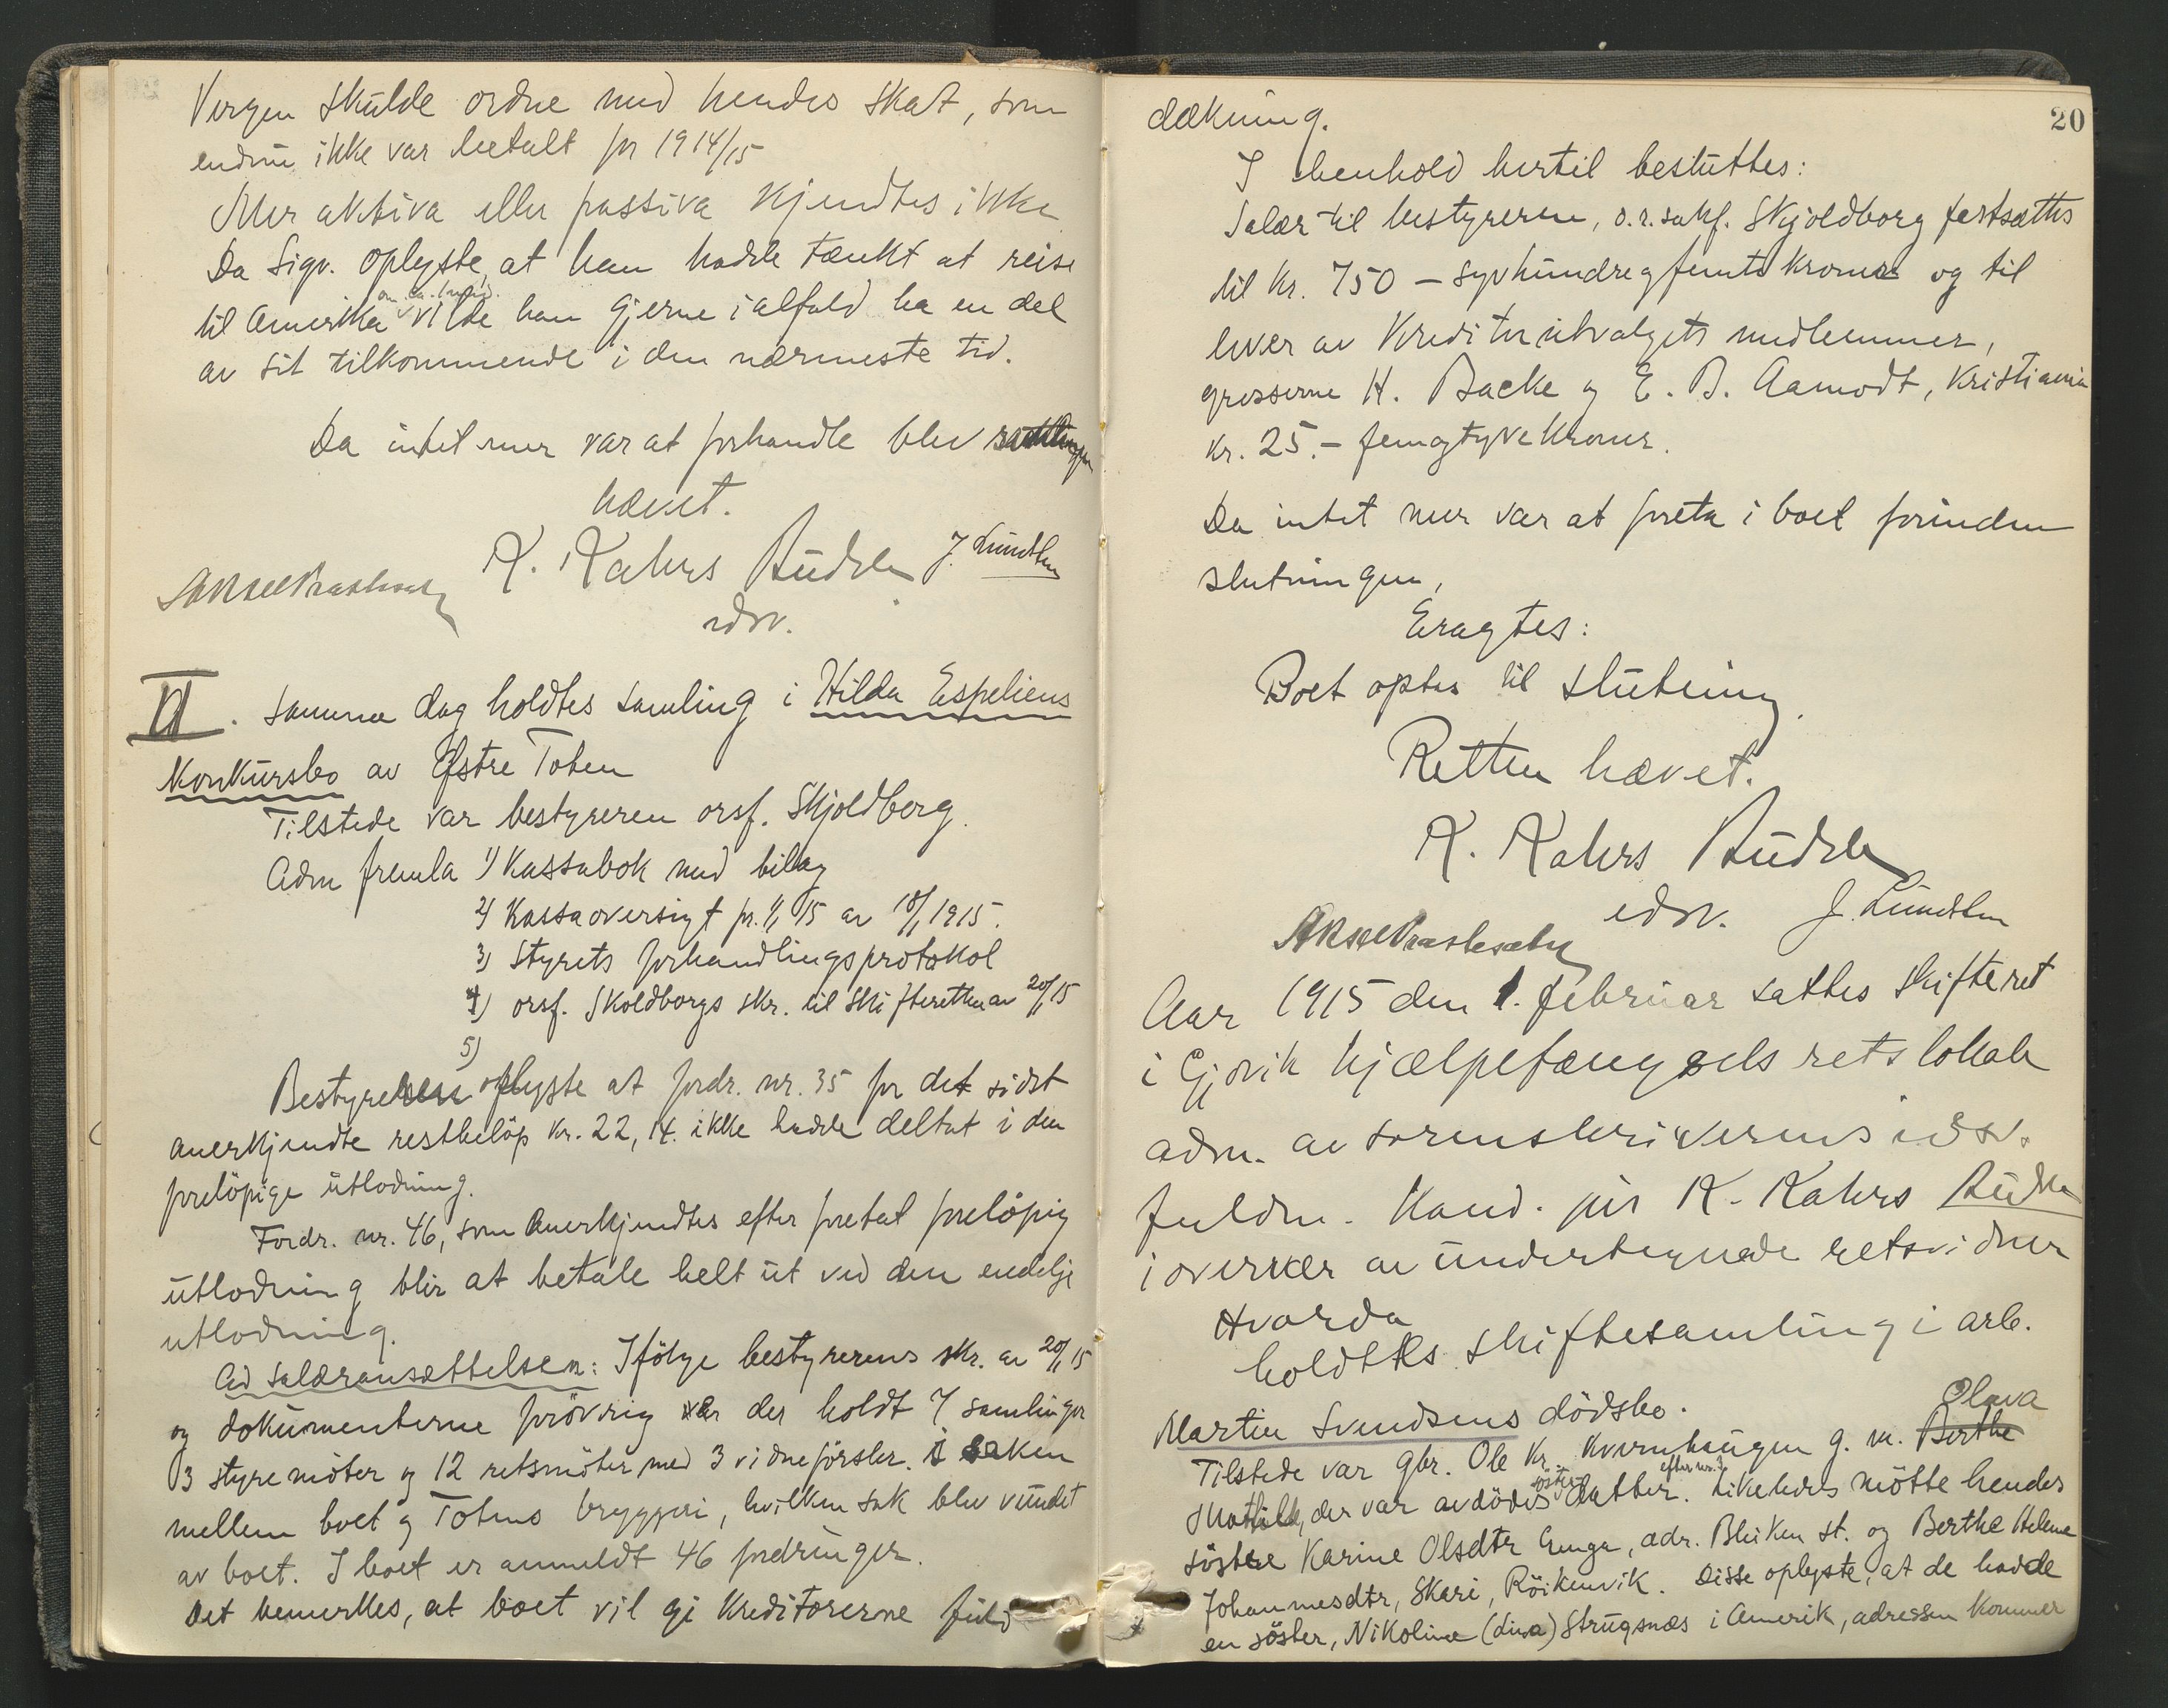 Vergen skulde ordne med hendes skat, som
endnu ikke var betalt for 1914/15
Mer aktiva eller passiva kjendtes ikke
Da Sigv. oplyste, at han hadde tænkt at reise
til Amerika vilde han gjerne ialfald ha en del
av sit tilkommende i den nærmeste tid.
Da intet mer var at forhandle blev samlingen
hævet.
K. Kahrs Budde J. Lundbn
edsv.
II. Samme dag holdtes samling i Hilda Espeliens
Konkursbo av Østre Toten
Tilstede var bestyreren orsf. Skjoldborg.
Adm fremla 1) Kassabok med bilag
2) Kassaoversigt pr. 1/1 15 av 18/1 1915.
3) Styrets forhandlingsprotokol
4) orsf. Skoldborgs skr. til Skifteretten av 20/1 15
5)
Bestyreren oplyste at fordr. nr. 35 for det sidst
anerkjendte restbeløp kr. 22,14. ikke hadde deltat i den
foreløpige utlodning.
Fordr. nr. 46, som anerkjendtes efter foretat foreløpig
utlodning blir at betale helt ut ved den endelige
utlodning.
Ad Salæransættelsen: Ifölge bestyrerens skr. av 20/1 15
og dokumenterne forövrig er der holdt 7 samlinger
3 styremöter og 12 retsmöter med 3 vidneförsler. i saken
mellem boet og Totens bryggeri, hvilken sak blev vundet
av boet. I boet er anmeldt 46 fordringer.
Det bemerkes, at boet vil gi kreditorerne fuld
20
dækning.
I henhold hertil besluttes:
Salær til bestyreren, o.r.sakf. Skjoldborg fastsættes
til kr. 750 – syvhundreogfemti kroner og til
hver av Kreditorutvalgets medlemmer,
grosserne H. Backe og E. B. Aamodt, Kristiania
kr. 25.- femogtyve kroner.
Da intet mer var at foreta i boet forinden
slutningen,
Eragtes:
Boet optas til slutning.
Retten hævet.
K. Kahrs Budde
edsv. J. Lundbn
Aar 1915 den 1. februar sattes skifteret
i Gjøvik hjælpefængsels retslokale
adm. av sorenskriverens edsv.
fuldm. Kand. jur K. Kahrs Budde
i overvær av undertegnede retsvidner
Hvorda
holdtes skiftesamling i arb.
Martin Svendsens dödsbo.
Olava
Tilstede var gbr. Ole Kr. Kvernhaugen g. m. Berthe
söster efter nr. 3
Mathilde, der var avdödes datter. Likeledes mötte hendes
söstre Karine Olsdtr Enger, adr. Bleiken st. og Berthe Helene
Johannesdtr, Skari, Röikenvik. Disse oplyste, at de hadde
en söster, Nikoline (dina) Strugsnæs i Amerik, adressen kommer